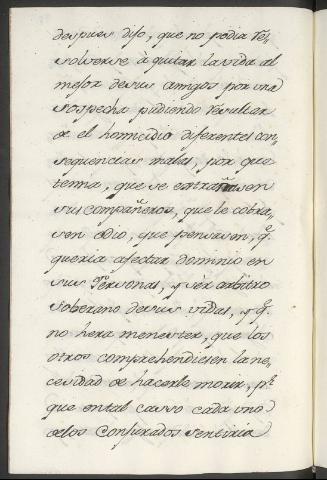 despues dijo, que no podia re=
solverse à quitar la vida al
mejor de sus amigos por una
sospecha pudiendo resultar
de el homicidio diferentes con=
sequencias malas, por que
temia, que se extrañasen
sus compañeros, que le cobra=
sen odio, que pensasen, q.e
queria afectar dominio en
sus Personas, y ser arbitro
soberano de sus vidas, y q.e
no hera menester, que los
otros comprehendiesen la ne=
cesidad de hacerle morir, p.r
que en tal casso cada uno
de los Conjurados sentiria